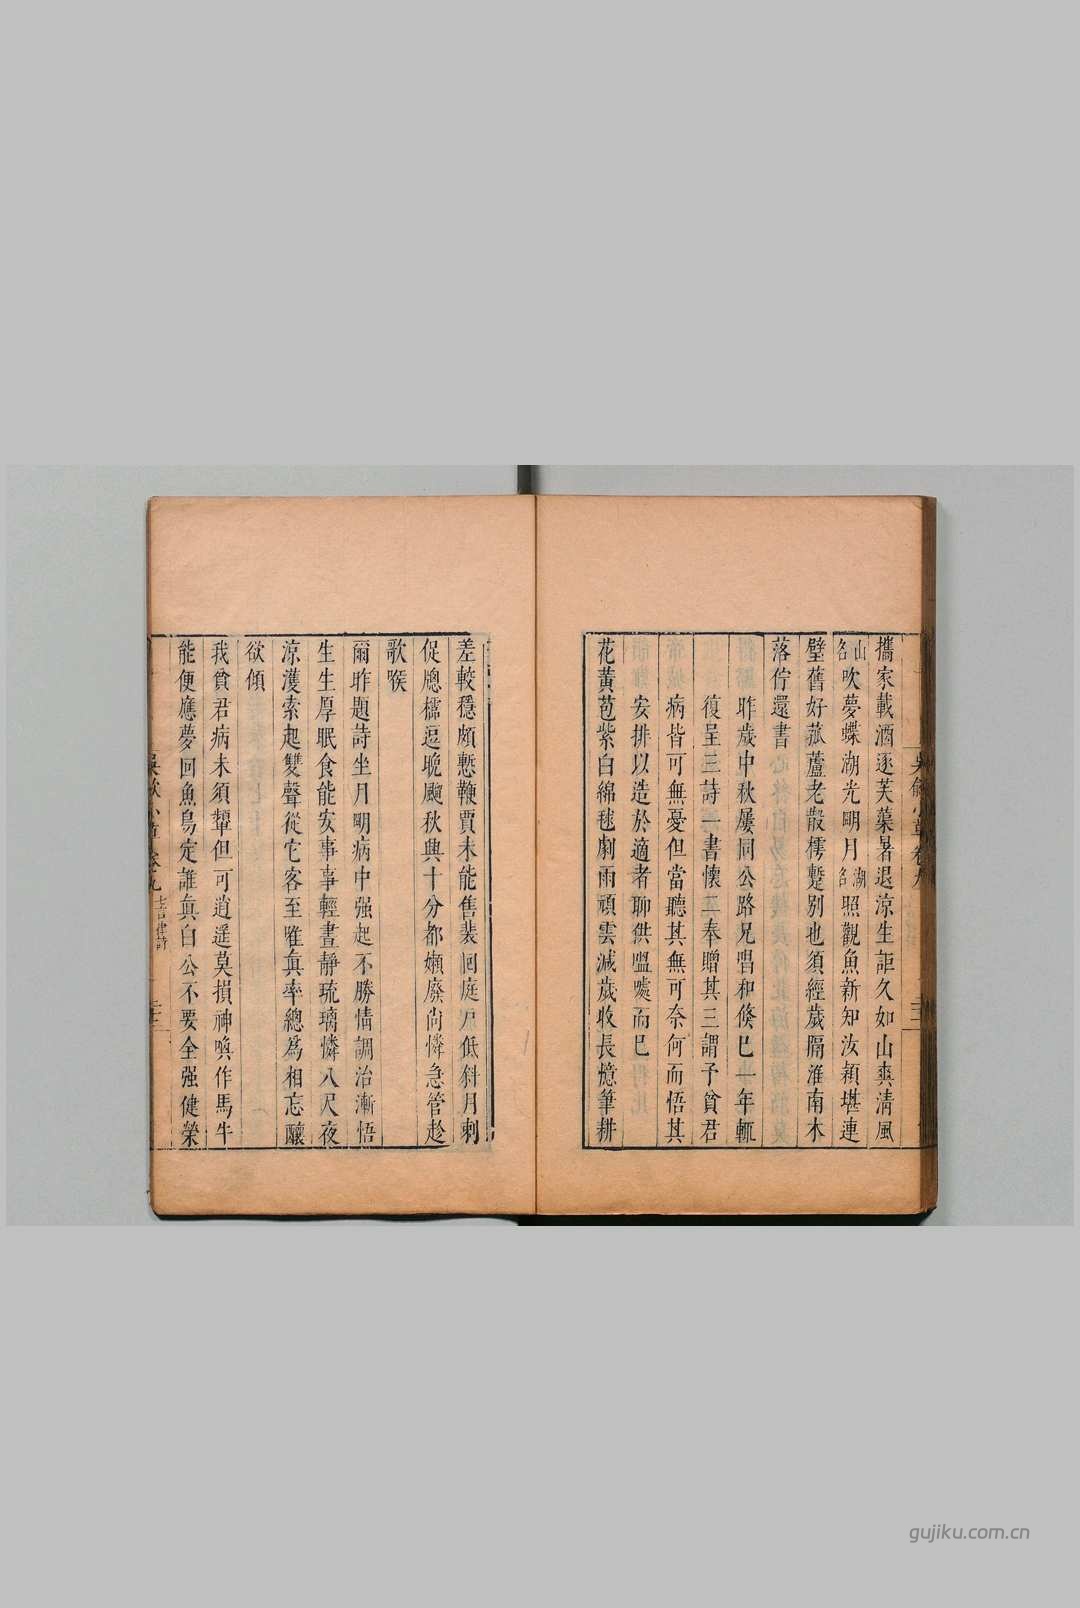 攜家載酒逐芙蕖暑退涼生詎久如山爽清風
山名吹夢蝶湖光明月湖名照觀魚新知汝潁堪連
璧舊好菰蘆老散樗蹔別也須經歲隔淮南木
落佇還書
昨歲中秋屢同公路兄唱和倏巳一年輒
復呈三詩一書懷二奉贈其三謂予貧君
病皆可無憂但當聽其無可奈何而悟其
安排以造於適者聊供嗢噱而巳
花黃苞紫白綿毬劇雨頑雲減歲收長憶筆耕
差較穩頗慙鞭賈未能售裴回庭戶低斜月剌
促牕櫺逗晚颸秋興十分都嬾廢尚憐急管趁
歌喉
爾昨題詩坐月明病中强起不勝情調治漸悟
生生厚眠食能安事事輕晝靜琉璃憐八尺夜
涼濩索起雙聲從它客至雖眞率總爲相忘釀
欲傾
我貧君病未須顰但可逍遥莫損神喚作馬牛
能便應夢回魚鳥定誰眞白公不要全强健榮
gujiku.com.cn